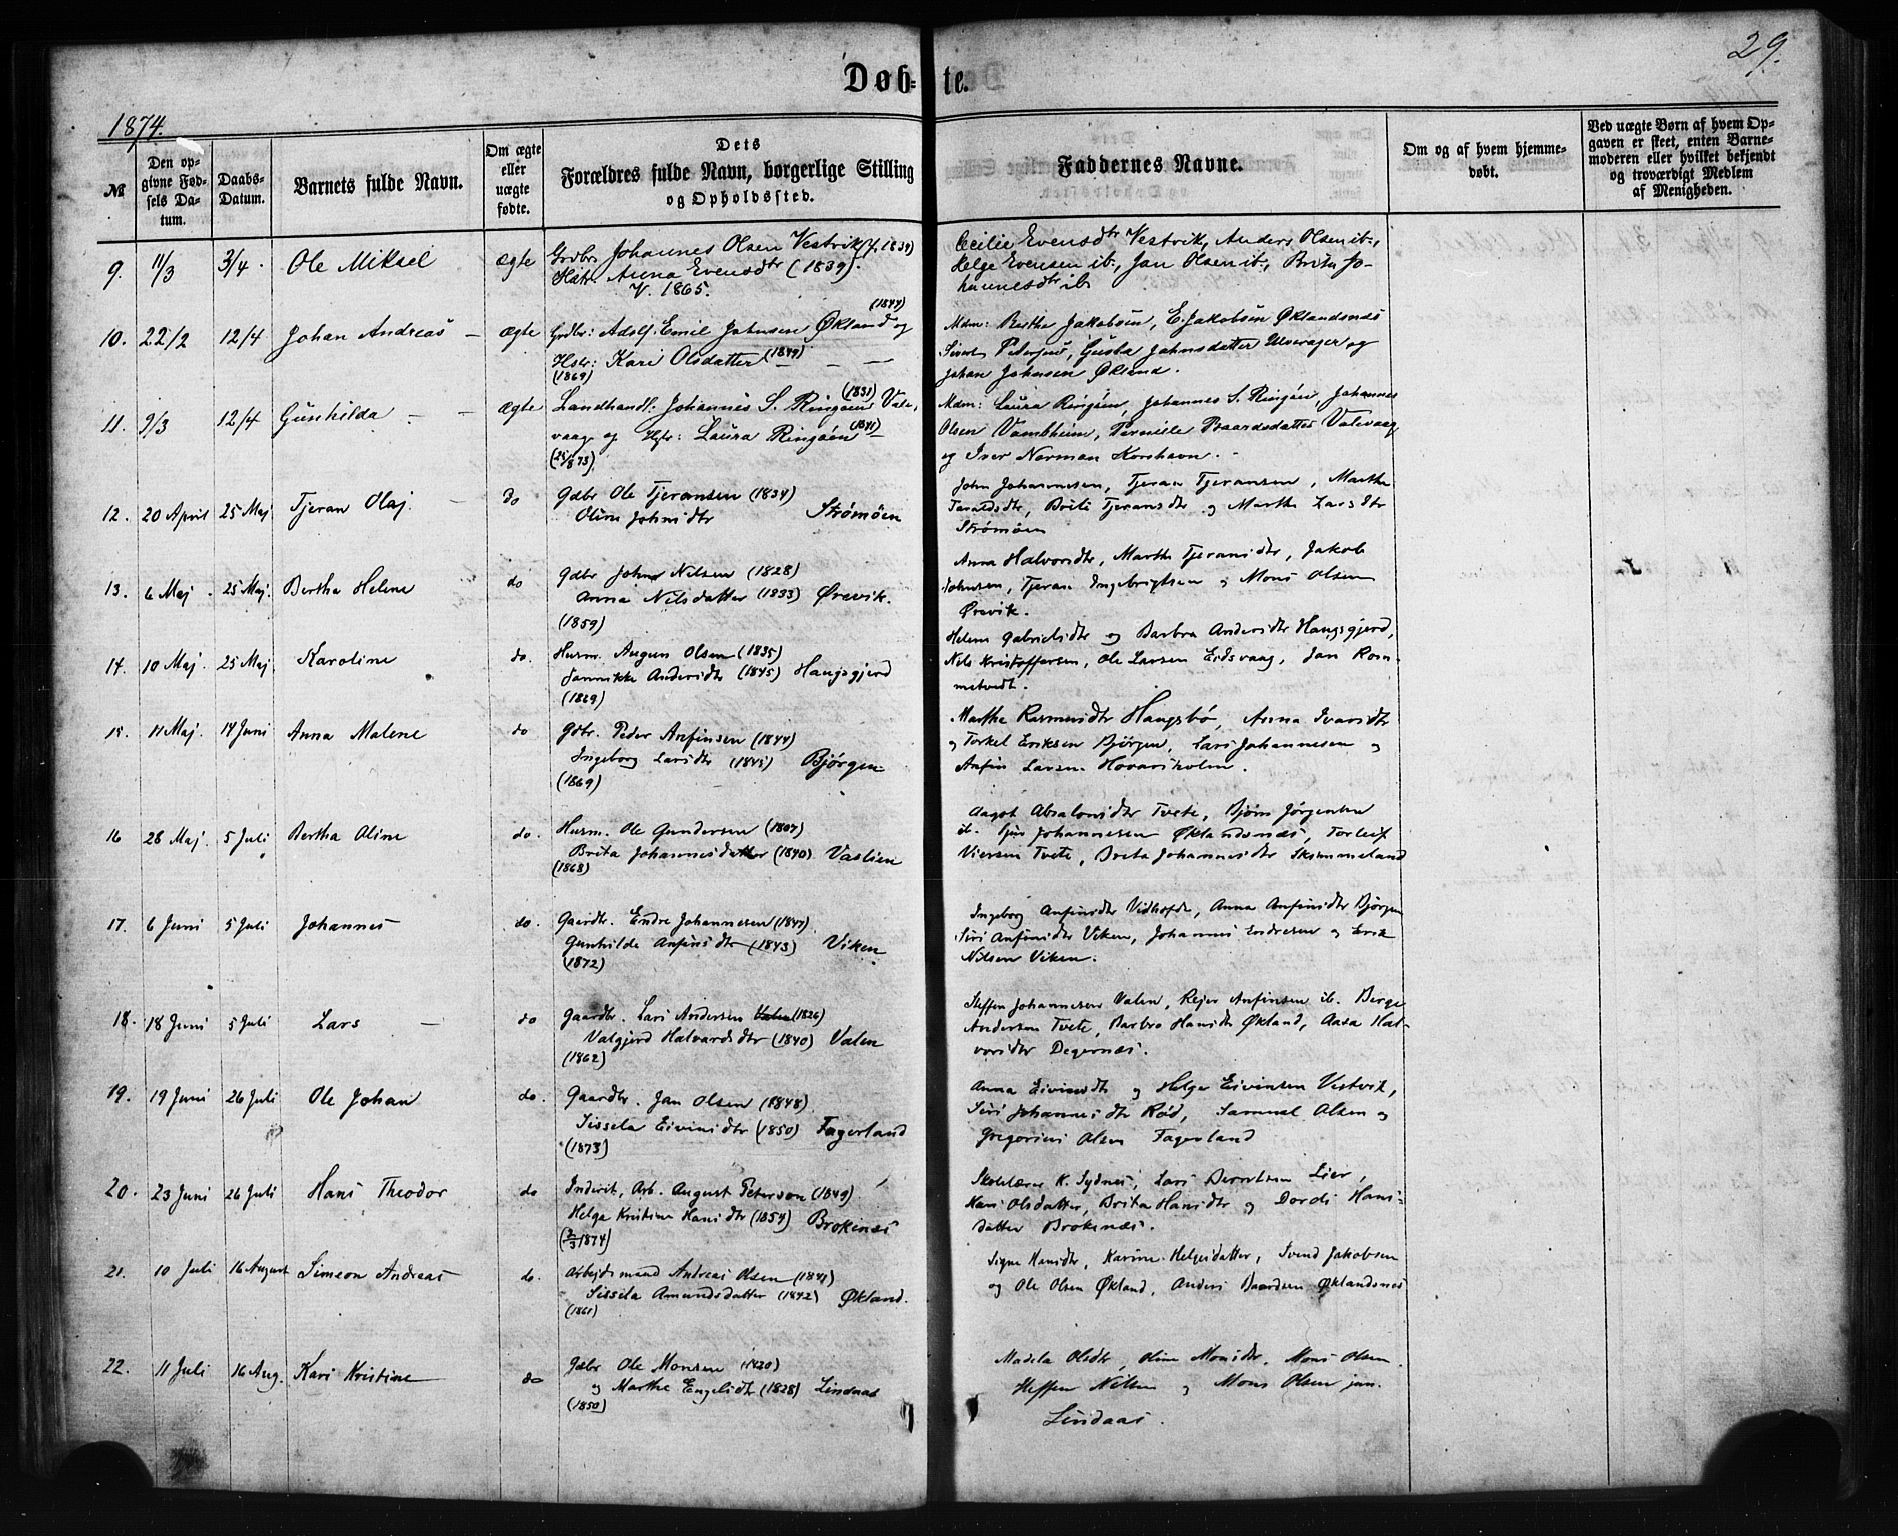 29.
Døb- te.
1874.
№
Den opgivne Fødsels Datum.
Daabs-Datum.
Barnets fulde Navn.
Om ægte eller uægte fødte.
Dets Forældres fulde Navn, borgerlige Stilling og Opholdssted.
Faddernes Navne.
Om og af hvem hjemmedøbt.
Ved uægte Børn af hvem Opgaven er skeet, enten Barnemoderen eller hvilket bekjendt og troværdigt Medlem af Menigheden.
9. 11/3 3/4. Ole Mikael ægte Grdbr Johannes Olsen Vestvik (f. 1834)
Hstr. Anna Evensdtr (1839).
V. 1865.
Cecilie Evensdtr Vestvik, Anders Olsen ib.,
Helge Evensen ib., Jan Olsen ib., Brita Jo-
hannesdtr ib
10. 22/2 12/4 Johan Andreas - ægte Grdbr: Adolf Emil Johnsen Økland og (1844)
Hstr: Kari Olsdatter (1849) - - -
(1869)
Mdm: Bertha Jakobsen, E. Jakobsen Øklandsnæs
Sivert Petersen, Gusta Johnsdatter Ulverager og
Johan Johnsen Økland.
11. 9/3 12/4 Gunhilda - - ægte Landhandl: Johannes S. Ringøen Vale- (1831)
vaag og Hstr: Laura Ringøen (1841) -
(25/8 73)
Mdm: Laura Ringøen, Johannes S. Ringøen, Johannes
Olsen Vambheim, Pernille Baardsdatter Valevaag
og Iver Norman Korshavn.
12. 20 April 25 Maj Tjeran Olaj - do Gdbr Ole Tjeransen (1834)
Oline Johnsdtr Strømøen
John Johannesen, Tjeran Tjeransen, Martha
Taraldsdtr, Brite Tjeransdtr og Martha Larsdtr
Strømøen
13. 6 Maj. 25 Maj. Bertha Helene do Gdbr John Nilsen (1828)
Anna Nilsdatter (1833) Ørevik.
(1859)
Anna Halvorsdtr, Martha Tjeransdtr, Jakob
Johnsen, Tjeran Ingebrigtsen og Mons Olsen
Ørevik.
14. 10 Maj. 25 Maj Karoline do. Husm. Augun Olsen (1835)
Jannikke Andersdtr (1845) Haugsgjerd
(1869)
Helene Gabrielsdtr og Barbra Andersdtr Haugsgjerd,
Nils Kristoffersen, Ole Larsen Eidsvaag, Jan Rom-
metvedt.
15. 11 Maj. 14 Juni Anna Malene do Gdbr. Peder Anfinsen (1844)
Ingeborg Larsdtr (1845) Bjørgen
(1869)
Martha Rasmusdtr Haugsbø, Anna Ivarsdtr
og Torkel Eriksen Bjørgen, Lars Johannesen og
Anfin Larsen Hovarsholm.
16 28 Maj. 5 Juli Bertha Oline do. Husm. Ole Gundersen (1807)
Brita Johannesdatter (1840) Vaslien
(1868)
Aagot Absalonsdtr Tvete, Bjørn Jørgensen
ib. Johannesen Øklandsnæs, Torleif
Viersen Tvete, Brita Johannesdtr Skimmeland
17. 6 Juni 5 Juli Johannes do. Gaardbr. Endre Johannesen (1847)
Gunhilde Anfinsdtr (1843) Viken
(1872)
Ingeborg Anfinsdtr Vidhofde, Anna Anfinsdtr Bjørgen
Siri Anfinsdtr Viken, Johannes Endresen og Erik
Nilsen Viken.
18. 18 Juni 5 Juli Lars - do Gaardbr. Lars Andersen Valen (1826)
Valgjerd Halvardsdtr (1840) Valen
(1862)
Steffen Johannesen Valen, Rejer Anfinsen ib. Berge
Andersen Tvete, Barbro Hansdtr Økland, Aasa Hal-
vorsdtr Degernæs.
19. 19 Juni 26 Juli Ole Johan do. Gaardbr. Jan Olsen (1848)
Sissela Eivinsdtr (1850) Fagerland
(1873)
Anna Eivinsdtr og Helge Eivinsen Vestvik,
Siri Johannesdtr Rød, Samuel Olsen og
Gregorius Olsen Fagerland
20. 23 Juni 26 Juli Hans Theodor do Inderst, Arb. August Peterson (1849)
Helga Kristine Hansdtr (1854) Brokenæs
(2/3 1874)
Skolelærer K. Sydnes, Lars Berntsen Lier,
Kari Olsdatter, Brita Hansdtr og Dordi Hans-
datter Brokenæs.
21. 10 Juli 16 August Simeon Andreas do. Arbejdsmand Andreas Olsen (1841)
Sissela Amundsdatter (1842) Økland.
(1861)
Signe Hansdtr, Karine Helgesdatter, Svend Jakobsen
og Ole Olsen Økland, Anders Baardsen Øklandsnes
22. 11 Juli 16 Aug. Kari Kristine do Gdbr Ole Monsen (1820)
og Martha Engelsdtr (1828) Lindaas
(1850)
Madela Olsdtr, Oline Monsdtr, Mons Olsen
Steffen Nilsen og Mons Olsen jun.
Lindaas.